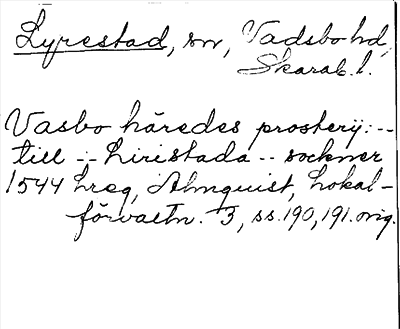 Lyrestad, sn, Vadsbo hd,
Skarab. l.
Vasbo häredes prosterij: --
till -:- Liristada -- sockner
1544 hreg, Almquist, Lokal-
förvaltn. 3, ss. 190, 191. orig.